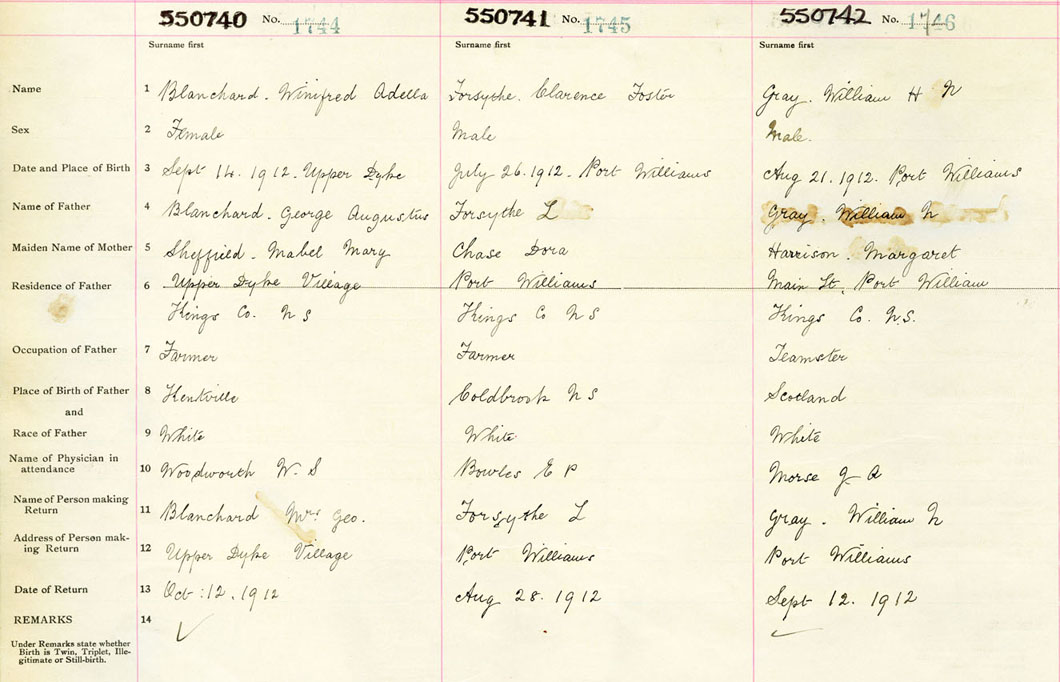 550740 No. 1744 550741 No. 1745 550742 No. 1746
Surname first Surname first Surname first
Name 1 Blanchard. Winifred Adella Forsythe. Clarence Foster Gray. William H N
Sex 2 Female Male Male.
Date and Place of Birth 3 Sept 14. 1912. Upper Dyke July 26. 1912. Port Williams Aug 21. 1912. Port Williams
Name of Father 4 Blanchard. George Augustus Forsythe L Gray. William N
Maiden Name of Mother 5 Sheffield. Mabel Mary Chase Dora Harrison. Margaret
Residence of Father 6 Upper Dyke Village Port Williams Main St, Port William
Kings Co. N S Kings Co N S Kings Co. N.S.
Occupation of Father 7 Farmer Farmer Teamster
Place of Birth of Father 8 Kentville Coldbrook N S Scotland
and
Race of Father 9 White White White
Name of Physician in
attendance 10 Woodworth W. S Bowles E P Morse J A
Name of Person making
Return 11 Blanchard Mrs Geo. Forsythe L Gray. William N
Address of Person mak-
ing Return 12 Upper Dyke Village Port Williams Port Williams
Date of Return 13 Oct : 12. 1912 Aug 28. 1912 Sept 12. 1912
REMARKS 14
Under Remarks state whether
Birth is Twin, Triplet, Ille-
gitimate or Still-birth.